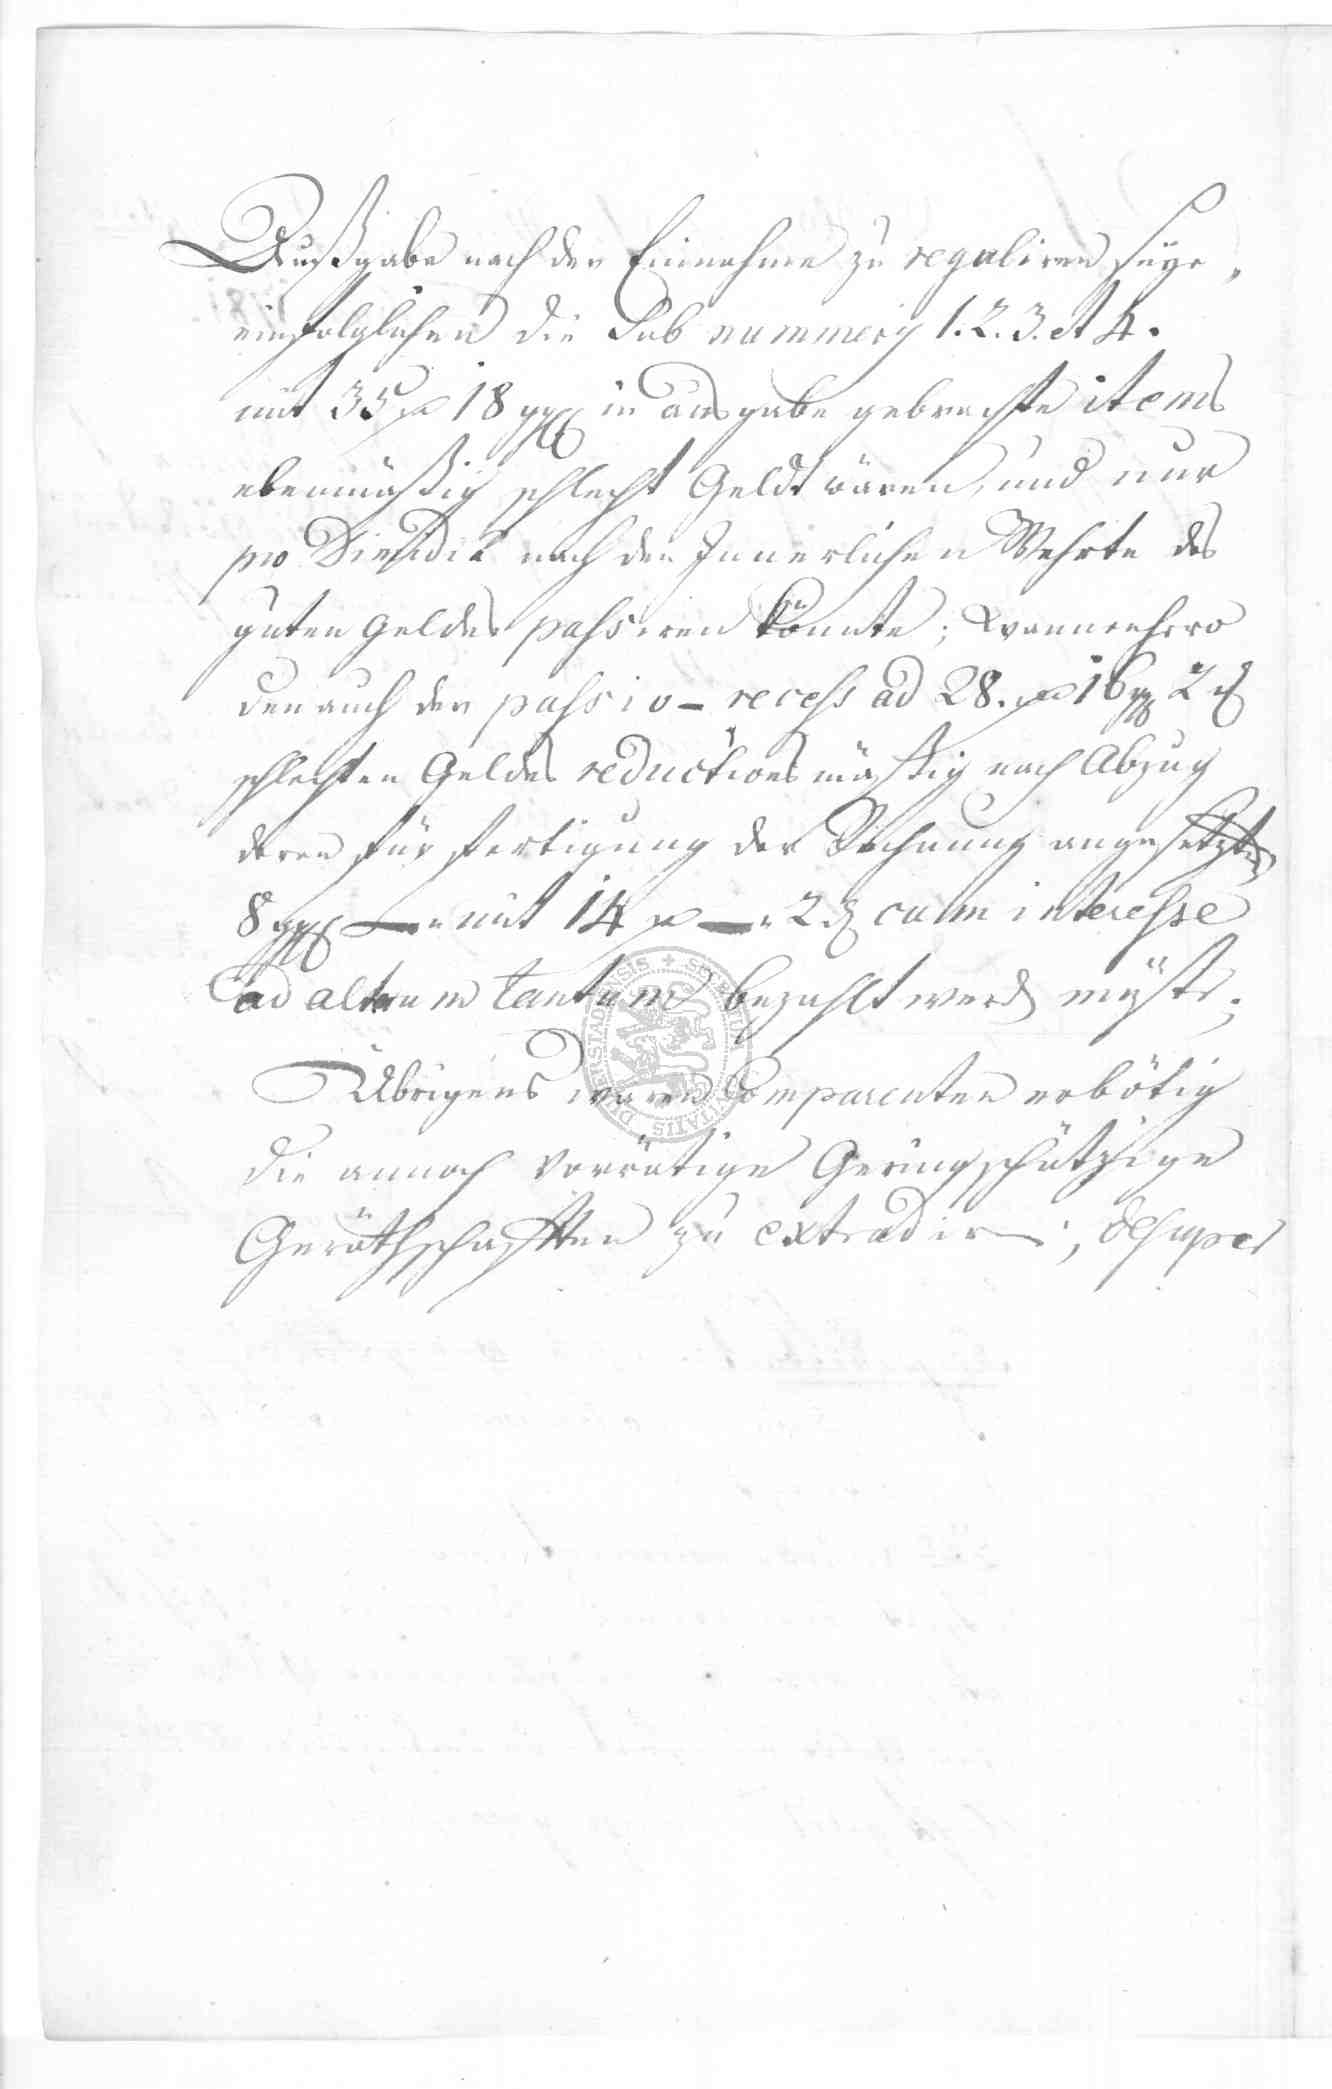 Außgabe nach der Einnahme zu reguliren seye,
einfolglichen die sub nummeris 1. 2. 3. et 4.
mit 35 rt 18 ggr in ausgabe gebrachte items
ebenmäßig schlecht Geldt wären, und nur
pro Dimidia nach den Innerlichen Wehrte des
guten Geldes passiren könnte; wannenhero
den auch der passiv-recess ad 28. rt 16 ggr 2 d
schlechten Geldes reductions mäßig nach Abzug
deren für fertigung der Rechnung angesetzten
8 ggr — mit 14 rt — 2 d cum interesse
ad alterum tantum bezahlt werd müste;
Übrigens waren Comparenten erbötig
die annoch vorrätige Geringschätzige
Geräthschafften zu extradiren; desuper
SECRETUM CIVITATIS DUDERSTADENSIS